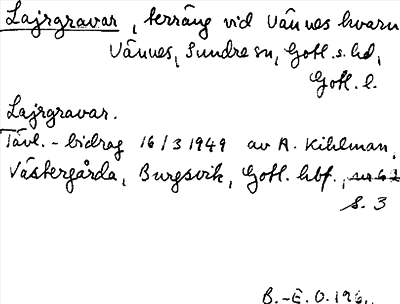 Lajrgravar, terräng vid Vännes kvarn
Vännes, Sundre sn, Gotl. s. hd,
Gotl. l.
Lajrgravar.
Tävl.-bidrag 16/3 1949 av A. Kihlman,
Västergårda, Burgsvik, Gotl. hbf.,
s. 3
B.-E. O. 196